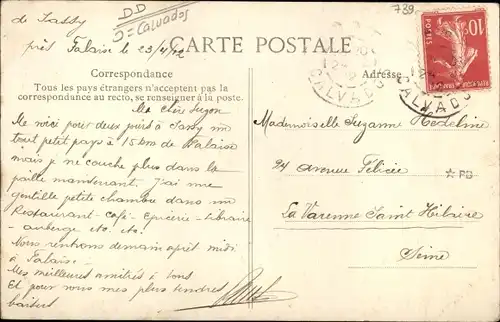 de Sassy
près Falaise ce 23/4/12
D.D
J = Calvados
739
CARTE POSTALE
Correspondance
Adresse
Tous les pays étrangers n'acceptent pas la
correspondance au recto, se renseigner à la poste.
Ma chère Suzon
Me voici pour deux jours à Sassy un
tout petit pays à 15 km de Falaise
mais je ne couche plus dans la
paille maintenant. J'ai une
gentille petite chambre dans un
Restaurant - Café - Epicerie - Libraire
- auberge etc. etc.
Nous rentrons demain après midi
à Falaise.
Mes meilleures amitiés à tous
Et pour vous mes plus tendres
baisers
Mademoiselle Suzanne Hedeline
24 avenue Félicie
La Varenne Saint Hilaire
Seine
* PD
CALVADOS
CALVADOS
POSTES
10